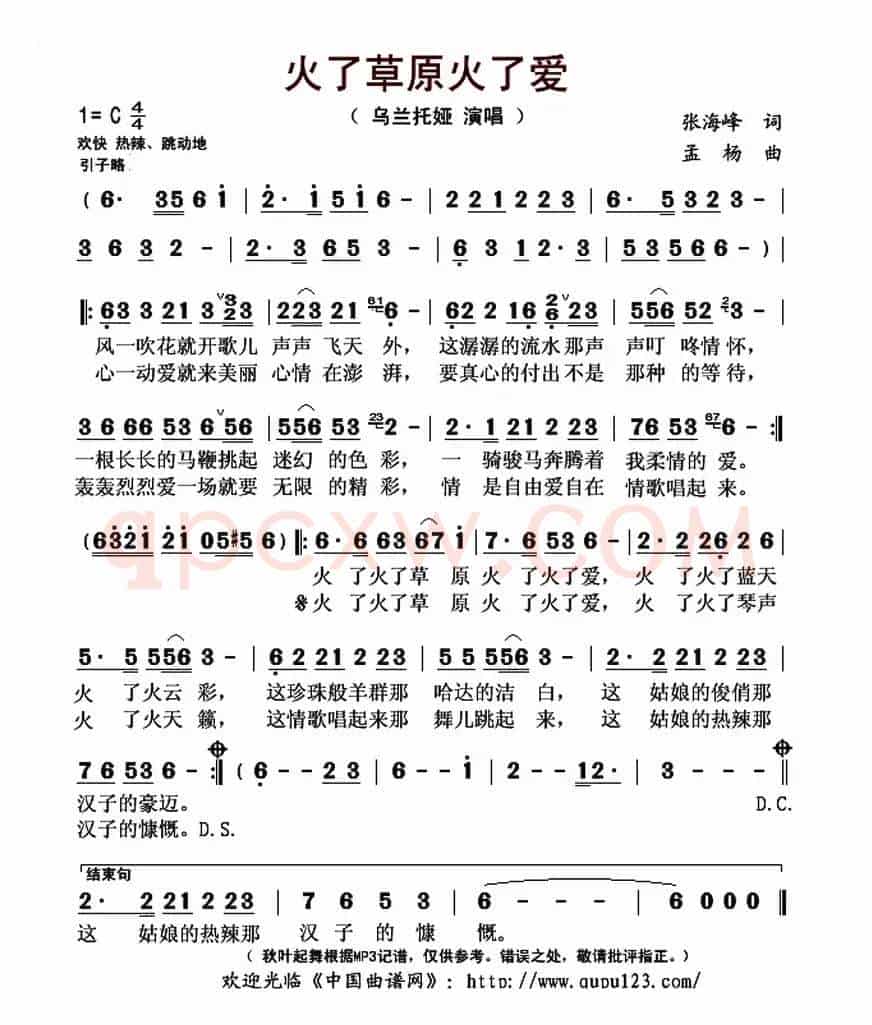 火了草原火了爱
1= C 4/4
（ 乌兰托娅 演唱 ）
张海峰 词
欢快 热辣、跳动地
孟 杨 曲
引子略
( 6· 35 6 i | 2· 1 5 i 6 - | 2 2 1 2 2 3 | 6· 5 3 2 3 - |
3 6 3 2 - | 2· 3 6 5 3 - | 6 3 1 2· 3 | 5 3 5 6 6 - ) |
‖: 63 3 21 3 3/2 23 | 223 21 61 6 - | 62 2 16 2/6 23 | 556 52 2 3 - |
风一吹花就开歌儿 声声 飞天 外， 这潺潺的流水那声 声叮 咚情 怀，
心一动爱就来美丽 心情 在澎 湃， 要真心的付出不是 那种 的等待，
3 6 66 53 6 56 | 556 53 23 2 - | 2· 1 21 2 23 | 76 53 67 6 - :‖
一根长长的马鞭挑起 迷幻 的色 彩， 一 骑骏马奔腾着 我柔情的 爱。
轰轰烈烈爱一场就要 无限 的精 彩， 情 是自由爱自在 情歌唱起 来。
qpcxw.COM
(6321 21 05#5 6) ‖: 6· 6 63 67 i | 7· 6 53 6 - | 2· 2 26 2 6 |
火 了火了草 原 火 了火了爱， 火 了火了蓝天
※火 了火了草 原 火 了火了爱， 火 了火了琴声
5· 5 556 3 - | 6 2 21 2 23 | 5 5 556 3 - | 2· 2 21 2 23 |
火 了火云 彩， 这珍珠般羊群那 哈达的洁 白， 这 姑娘的俊俏那
火 了火天 籁， 这情歌唱起来那 舞儿跳起 来， 这 姑娘的热辣那
7 6 53 6 - :‖ ( 6 - - 2 3 | 6 - - i | 2 - - 12· | 3 - - - ‖
汉子的豪迈。 D.C.
汉子的慷慨。D.S.
结束句
2· 2 21 2 23 | 7 6 5 3 | 6 - - - | 6 0 0 0 ‖
这 姑娘的热辣那 汉 子 的 慷 慨。
（ 秋叶起舞根据MP3记谱，仅供参考。错误之处，敬请批评指正。）
欢迎光临《中国曲谱网》: http://www.qupu123.com/